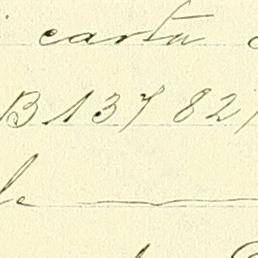 carta
B 137 82
le